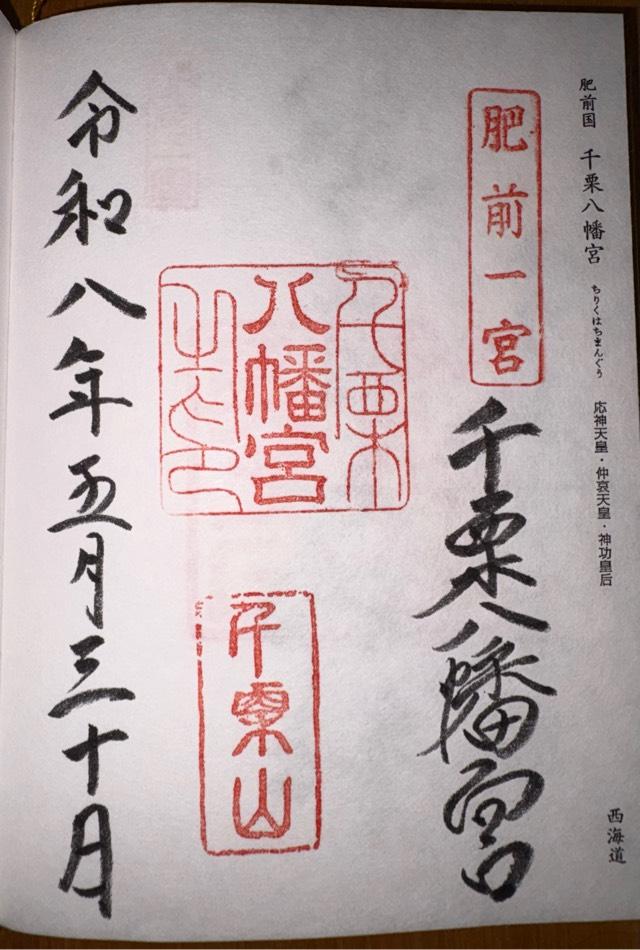 肥前国 千栗八幡宮 ちりくはちまんぐう 応神天皇・仲哀天皇・神功皇后
西海道
肥前一宮
千栗八幡宮
千栗
八幡宮
之印
千栗山
令和八年五月三十月